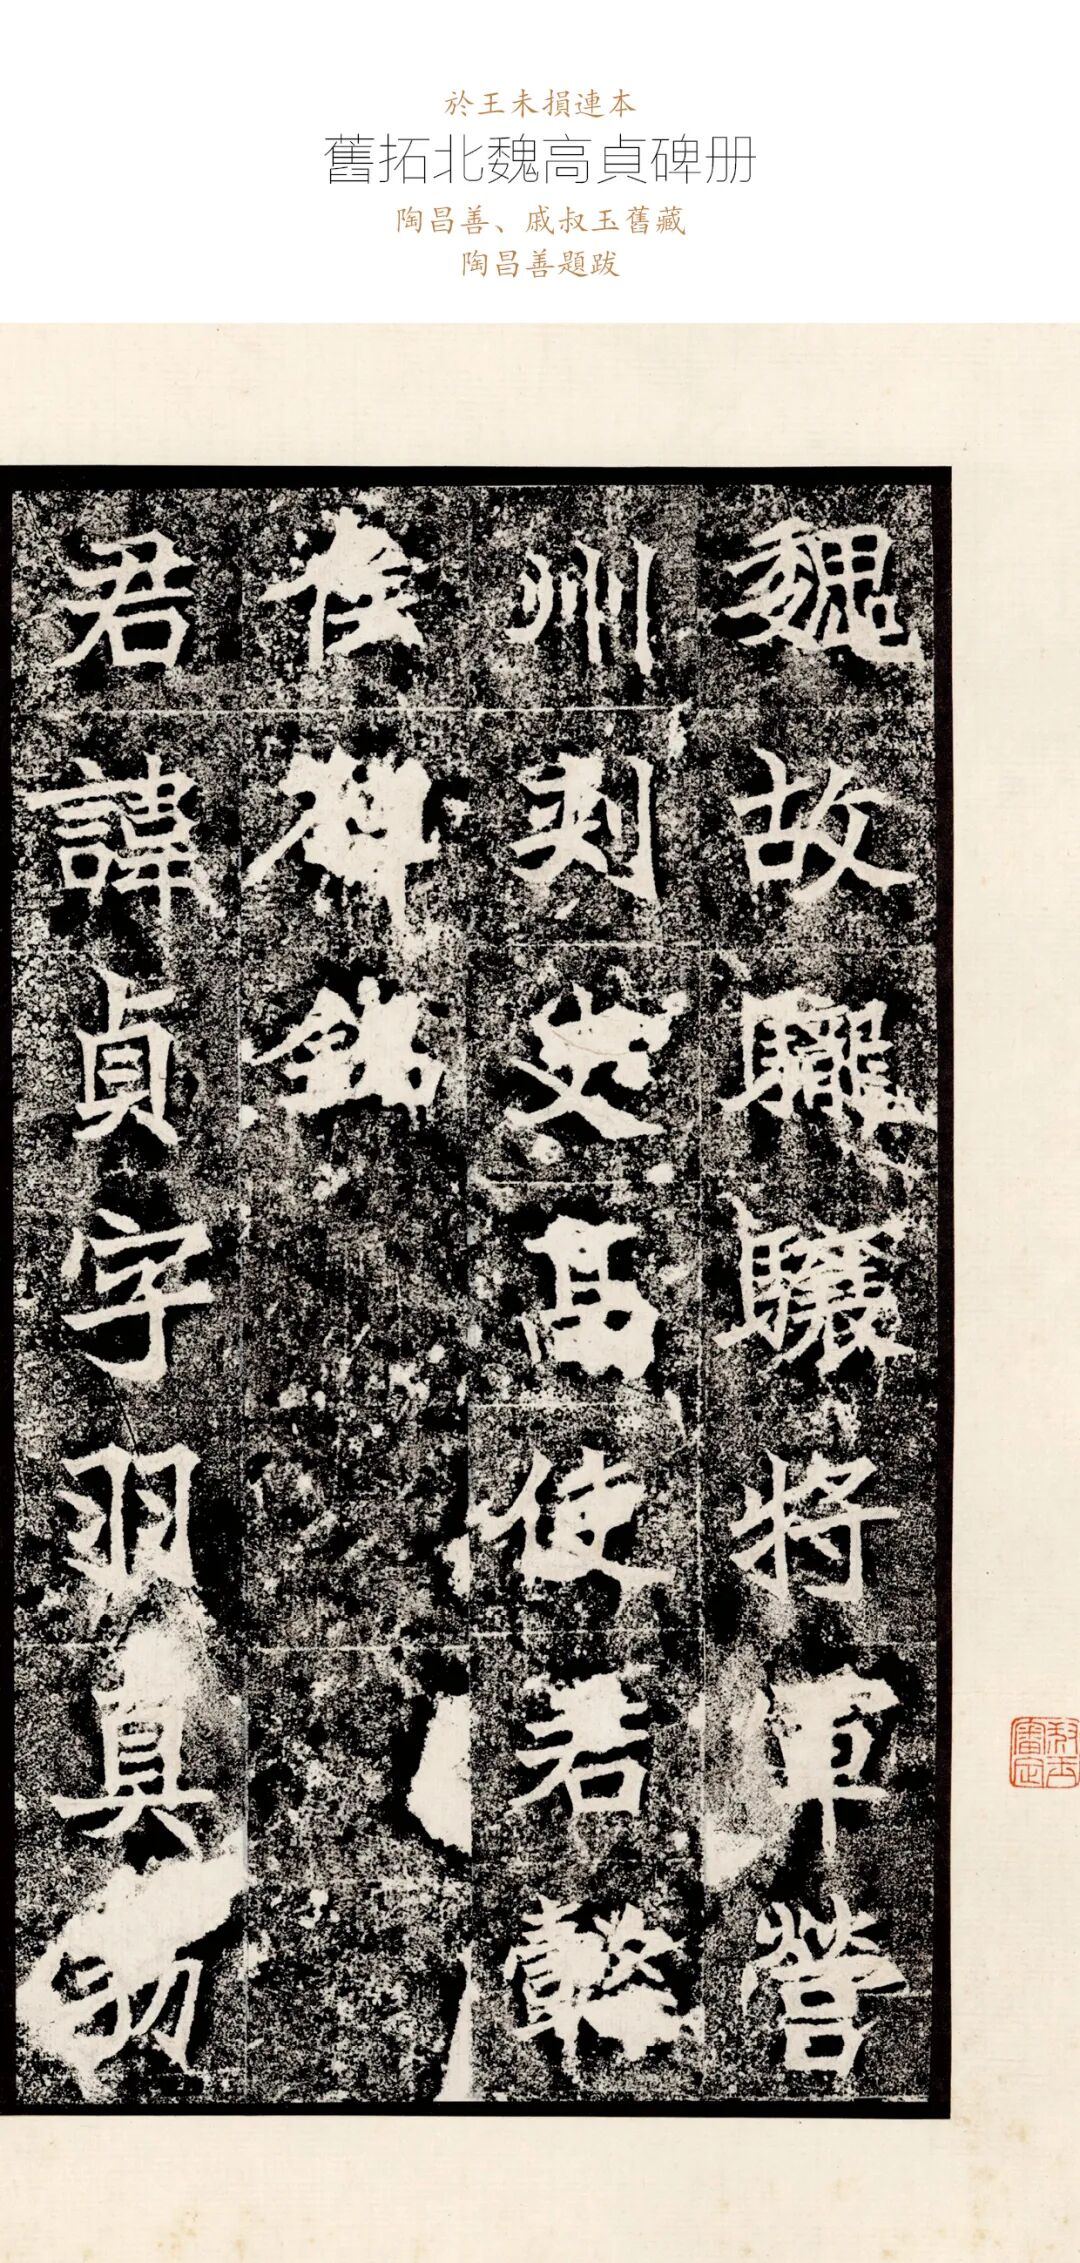 於王未損連本
舊拓北魏高貞碑册
陶昌善、戚叔玉舊藏
陶昌善題跋
魏故龍驤將軍營
州刺史高使君懿
侯碑銘
君諱貞字羽真勃
叔玉審定